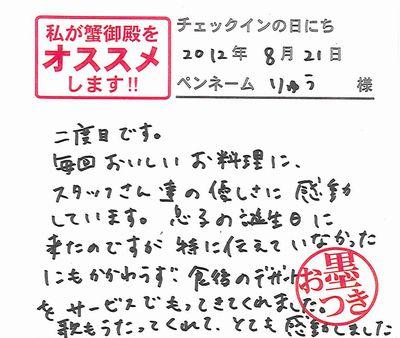 私が蟹御殿を
オススメ
します!!
チェックインの日にち
2012年 8月 21日
ペンネーム りゅう 様
二度目です。
毎回おいしいお料理に、
スタッフさん達の優しさに感動
しています。息子の誕生日に
来たのですが特に伝えていなかった
にもかかわらず、食後のデザート
をサービスでもってきてくれました。
歌もうたってくれて、とても感動しました
お墨つき